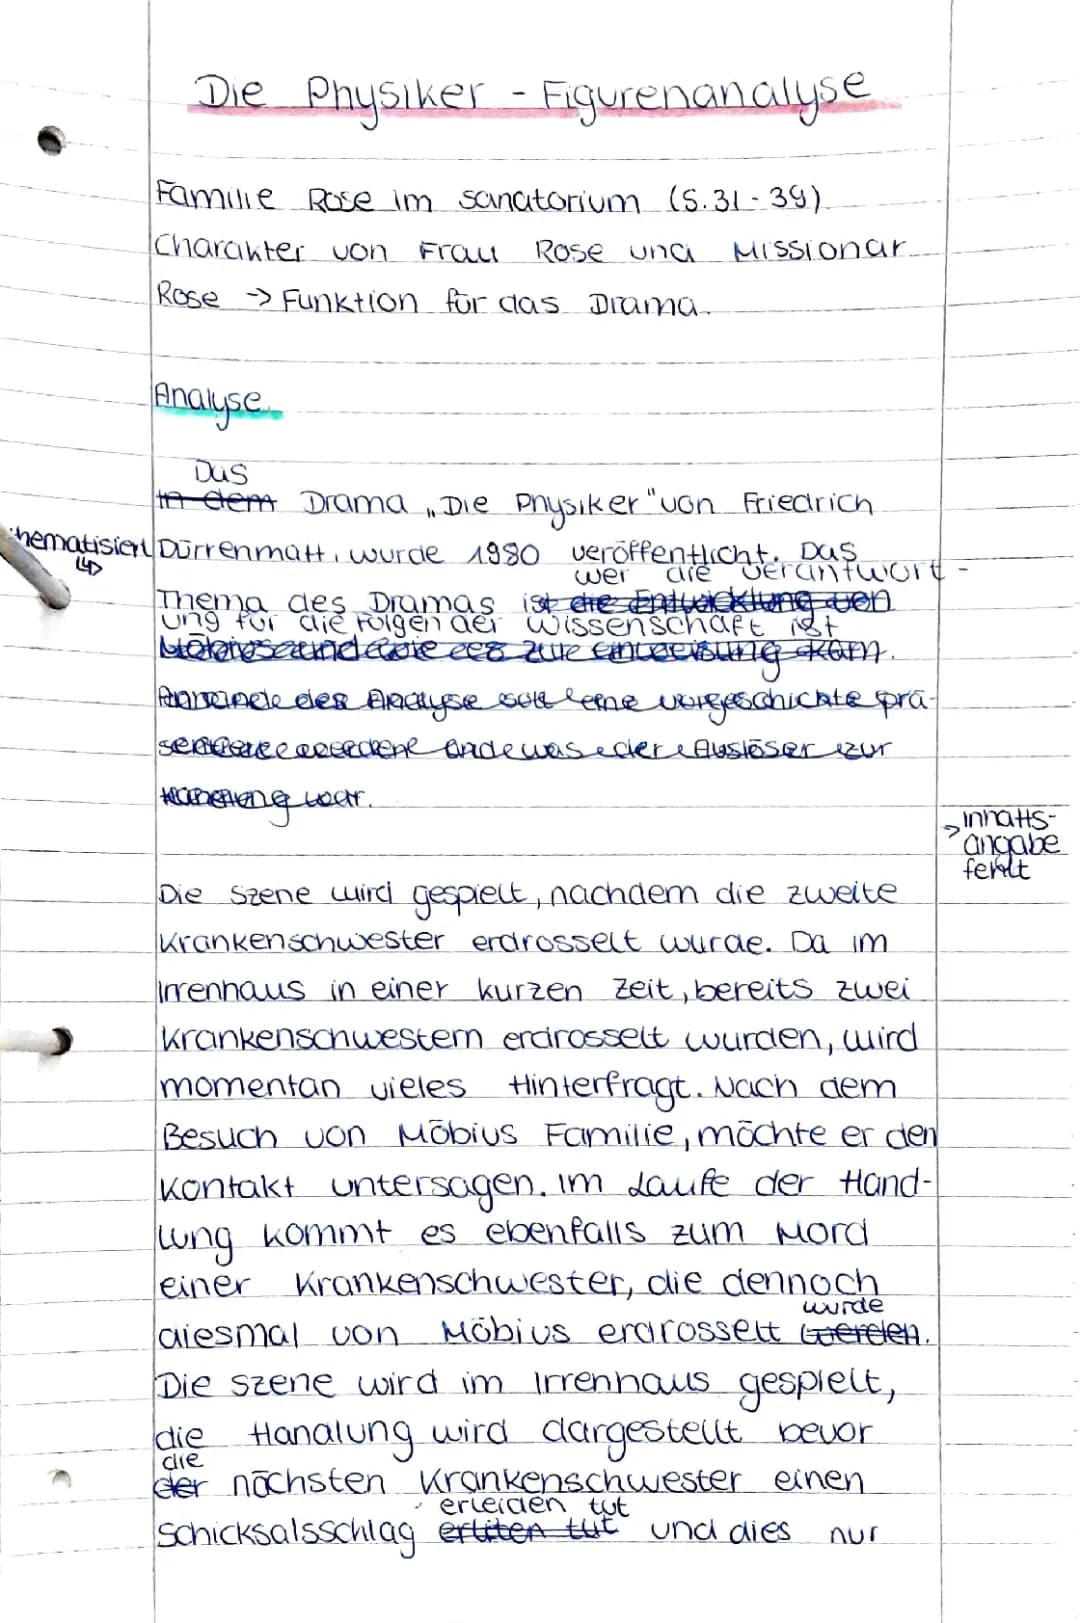 Die Physiker - Figurenanalyse
Familie Rose im Sanatorium (S.31-39)
Charakter von Frau Rose und Missionar
Rose -> Funktion für das Drama.
Analyse
Das
in dem Drama „Die Physiker" von Friedrich
thematisiert Dürrenmatt, wurde 1980 veröffentlicht. Das
wer die Verantwort-
Thema des Dramas ist die Entwicklung von
ung für die Folgen der Wissenschaft ist
Möbius und wie es zur einweisung kam.
der Analyse soll eine vorgeschichte prä-
und was der Auslöser zur
war.
-> inhalts-
angabe
fehlt
Die Szene wird gespielt, nachdem die zweite
Krankenschwester erdrosselt wurde. Da im
Irrenhaus in einer kurzen Zeit, bereits zwei
Krankenschwestern erdrosselt wurden, wird
momentan vieles Hinterfragt. Nach dem
Besuch von Möbius Familie, möchte er den
Kontakt untersagen. Im Laufe der Hand-
lung kommt es ebenfalls zum Mord
einer Krankenschwester, die dennoch
wurde
diesmal von Möbius erdrosselt werden.
Die Szene wird im Irrenhaus gespielt,
die Handlung wird dargestellt bevor
die
der nächsten Krankenschwester einen
erleiden tut
Schicksalsschlag erliten tut und dies nur